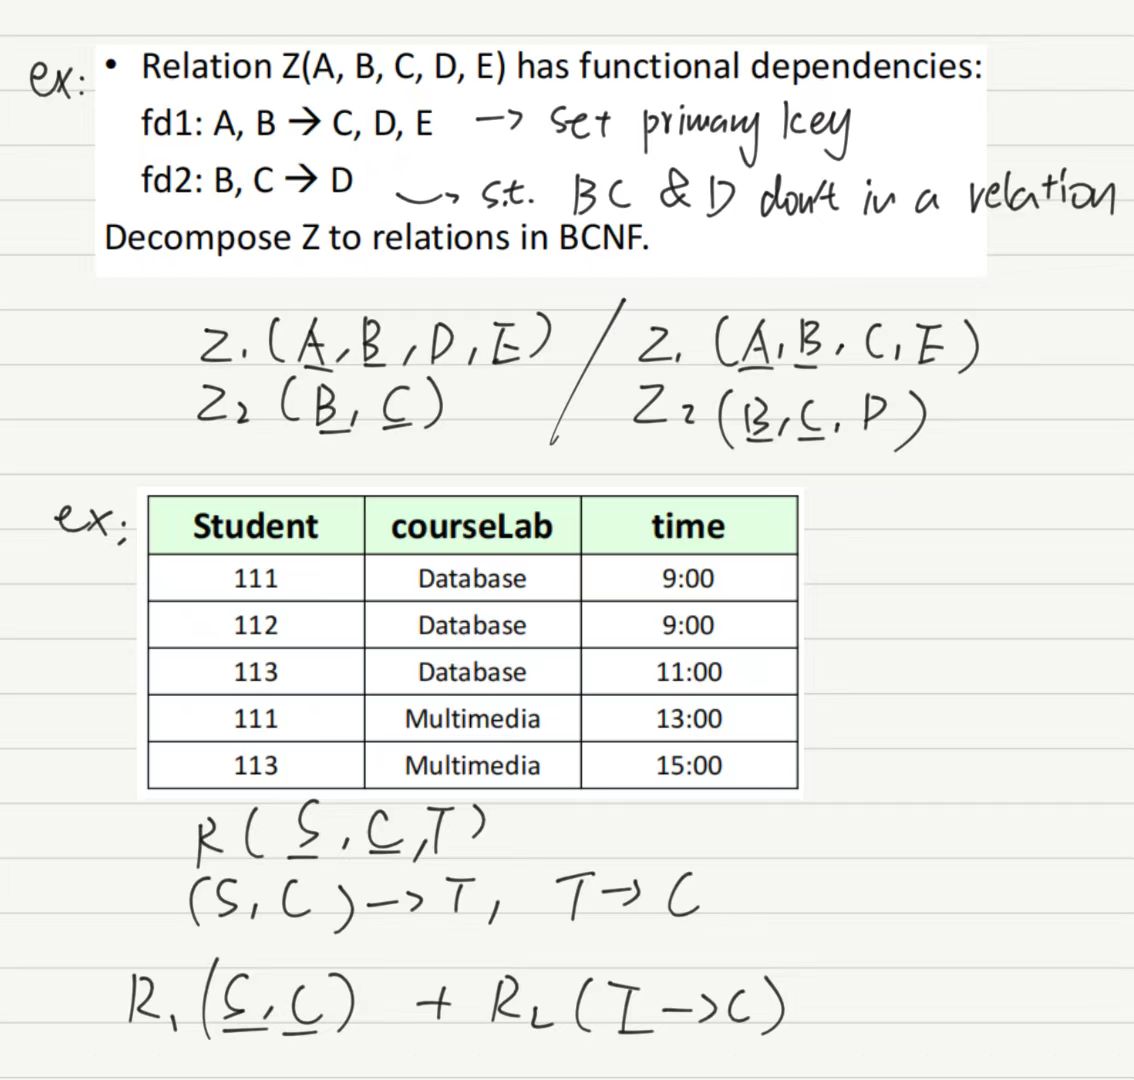 ex: • Relation Z(A, B, C, D, E) has functional dependencies:
fd1: A, B → C, D, E -> set primary key
fd2: B, C → D -> s.t. BC & D don't in a relation
Decompose Z to relations in BCNF.
Z1 (A, B, D, E) / Z1 (A, B, C, E)
Z2 (B, C) Z2 (B, C, D)
ex:
Student courseLab time
111 Database 9:00
112 Database 9:00
113 Database 11:00
111 Multimedia 13:00
113 Multimedia 15:00
R (S, C, T)
(S, C) -> T, T -> C
R1 (S, C) + R2 (T -> C)